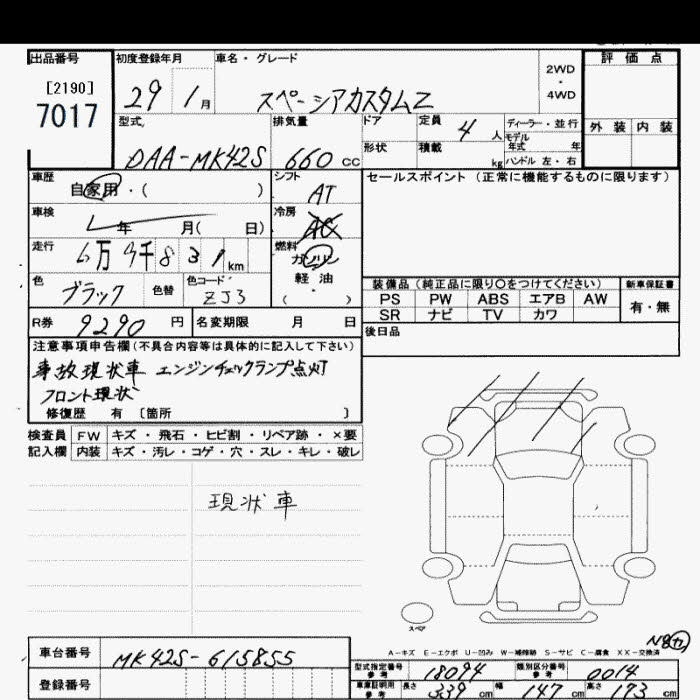 出品番号 初度登録年月 車名・グレード 評価点
[2190] 2WD
7017 29 1月 スペーシアカスタムZ ・ 4WD
型式 排気量 ドア 定員 4人 ディーラー・並行 外装 内装
モデル年式 年
DAA-MK42S 660 CC 形状 積載 kg ハンドル 左・右
車歴 シフト セールスポイント (正常に機能するものに限ります)
自家用・( ) AT
車検 冷房
年 月( 日) AC
走行 燃料
km ガソリン
色 色替 色コード 軽油
ブラック ZJ3 ( ・ )
装備品 (純正品に限り○をつけてください) 新車保証書
PS PW ABS エアB AW 有・無
SR ナビ TV カワ
R券 9290 円 名変期限 月 日 後日品
注意事項申告欄(不具合内容等は具体的に記入して下さい)
事故現状車 エンジンチェックランプ点灯
フロント現状
修復歴 有 [箇所 ]
検査員 FW キズ・飛石・ヒビ割・リペア跡・×要
記入欄 内装 キズ・汚レ・コゲ・穴・スレ・キレ・破レ
現状車
スペア
A-キズ E-エクボ U-凹み W-補修跡 S-サビ C-腐食 XX-交換済
車台番号 MK42S-615855
型式指定番号 参考 18094 類別区分番号 参考 0014
登録番号
車庫証明用 参考 長さ 339 cm 幅 147 cm 高さ 173 cm